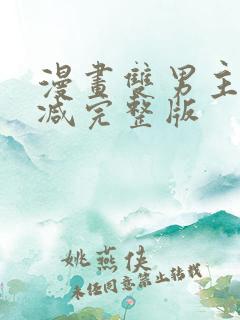 漫畫雙男主
减完整版
姚燕侠
未任同意禁止转载